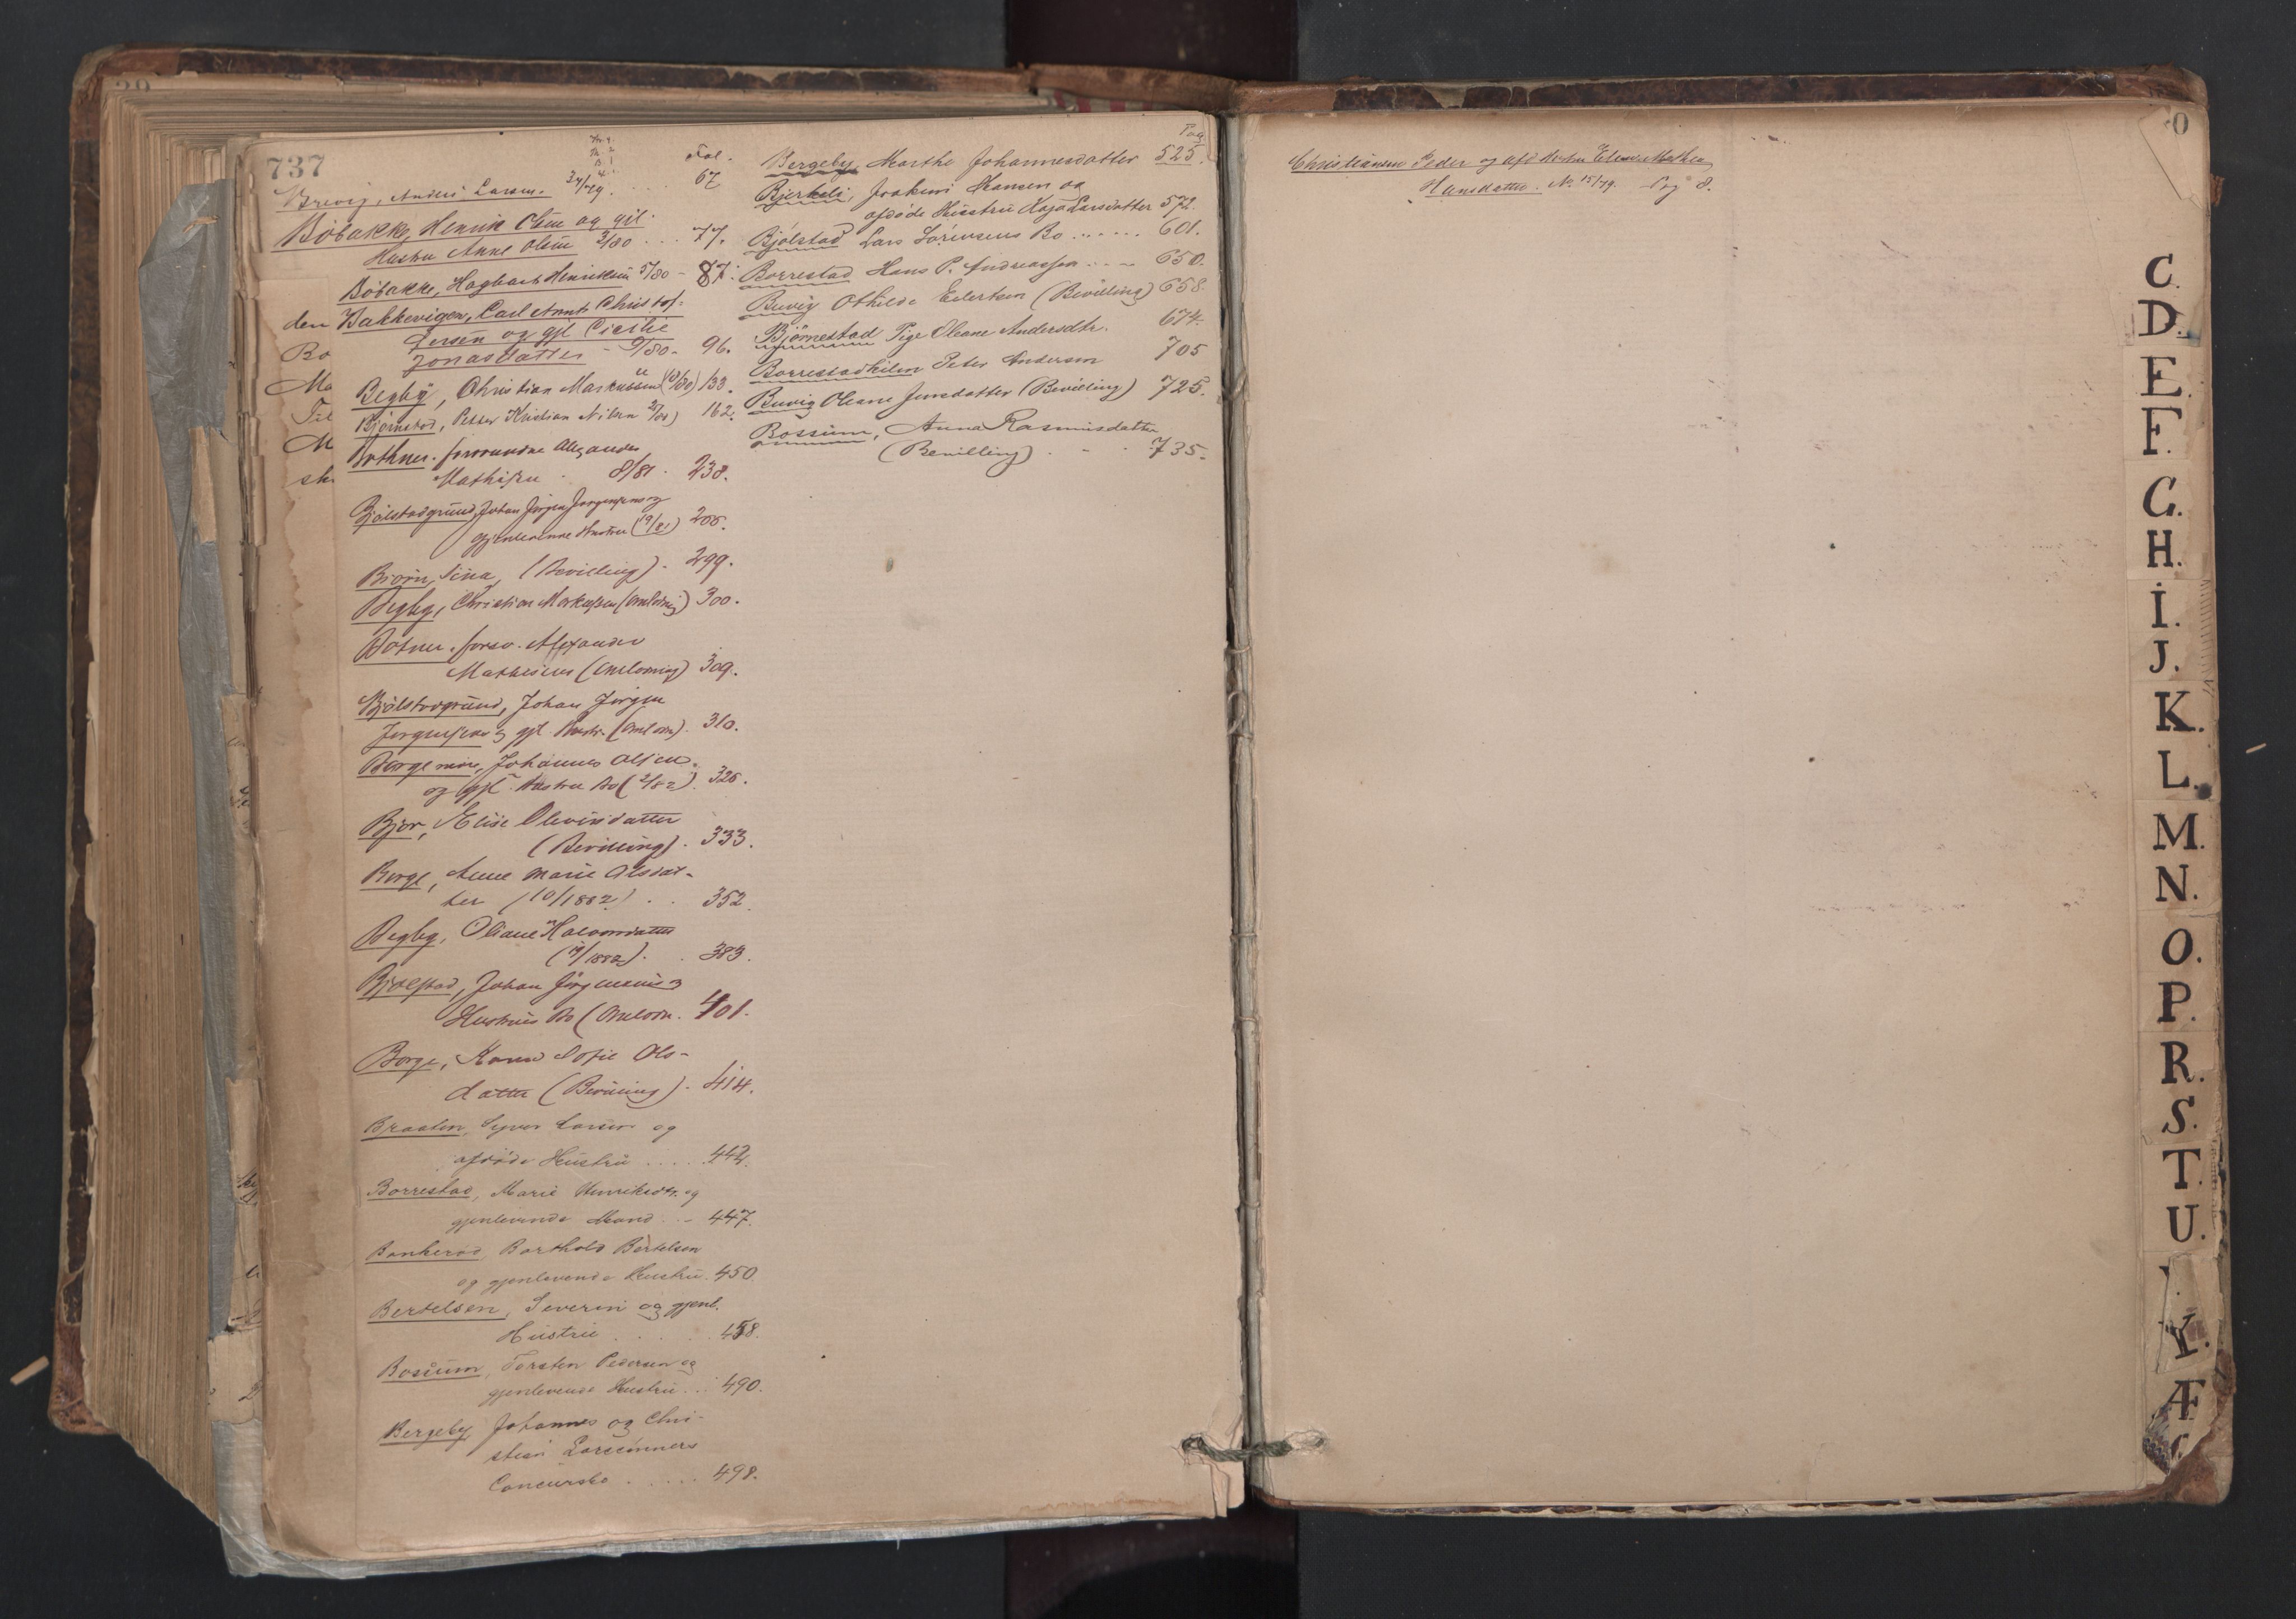 737
Fol.
Brevig, Anders Larsen. 34/79. . . . . 67
Böbakke, Henrik Olsen og gjl.
Hustru Anne Olsen 3/80 . . . 77.
Böbakke, Hagbart Henriksen 5/80 - 87.
den Bakkevigen, Carl Arnt Christof-
fersen og gjl Cicilie
Jonasdatter - 9/80 - 96.
Begby, Christian Markussen 133.
Bjørnstad, Petter Kristian Nilsen 162.
Bothner. forsvundne Alexander
Mathisen . 8/81 . 238.
Bjølstadgrund, Johan Jørgen Jørgensens og
gjenlevende Hustru (19/81)
Bjørn, Sina, (Bevilling) . 299.
Begby, Christian Markussen (Omlodning) 300.
Botner. forsv. Alexander
Mathisens (Omlodning) 309.
Bjölstadgrund, Johan Jörgen
Jörgensens og gjl. Hustr. (Omlodn). 310.
Johannes Olsen.
og gjl. Hustru Bo (2/82). 326.
Bjør, Elise Olevinsdatter
(Bevilling) . 333.
Borge, Anne Marie Olsdat-
ter (10/1882) . . 352.
Begby, Oliane Halvorsdatter
(19/1882) . . 383.
Bjølstad, Johan Jörgensens og
Hustrues Bo (Omlodn. 401.
Borge, Karen Sofie Ols-
datter (Bevilling) . 414.
Braaten, Syver Larsen og
afdöde Hustru . . . . 442.
Borrestad, Marie Henriksdtr. og
gjenlevende Mand . . - 447.
Bankerød, Barthold Bertelsen
og gjenlevende Hustru . 450.
Bertelsen, Severin og gjenl.
Hustru . . . . . 458.
Bossum, Torsten Pedersen og
gjenlevende Hustru . . . 490.
Bergeby Johannes og Chri-
stian Larsenners
Concursbo . . . . . 498.
Bo
Ma
Til
M
sk
Pag
Bergeby, Marthe Johannesdatter 525.
Bjerkeli, Joakim Hansen og
afdöde Hustru Kaja Larsdatter 572.
Bjølstad Lars Sörensens Bo . . . . . . 601.
Borrestad Hans P. Andreassen . . . - 650.
Buvig Othilde Eilertsen (Bevilling) 658.
Björnestad Pige Oleane Andersdtr. 674.
Borrestadkilen Peter Andersen 705
Buvig Oleane Jensdatter (Bevilling) 725.
Bossum, Anna Rasmusdatter
(Bevilling) . - . 735.
Christiansen Peder og afd Hustru Elene Mathea
Hansdatter. No 15/79. Pag 8.
C.
D.
E.
F.
G.
H.
I.
J.
K.
L.
M.
N.
O.
P.
R.
S.
T.
U.
Y.
Æ